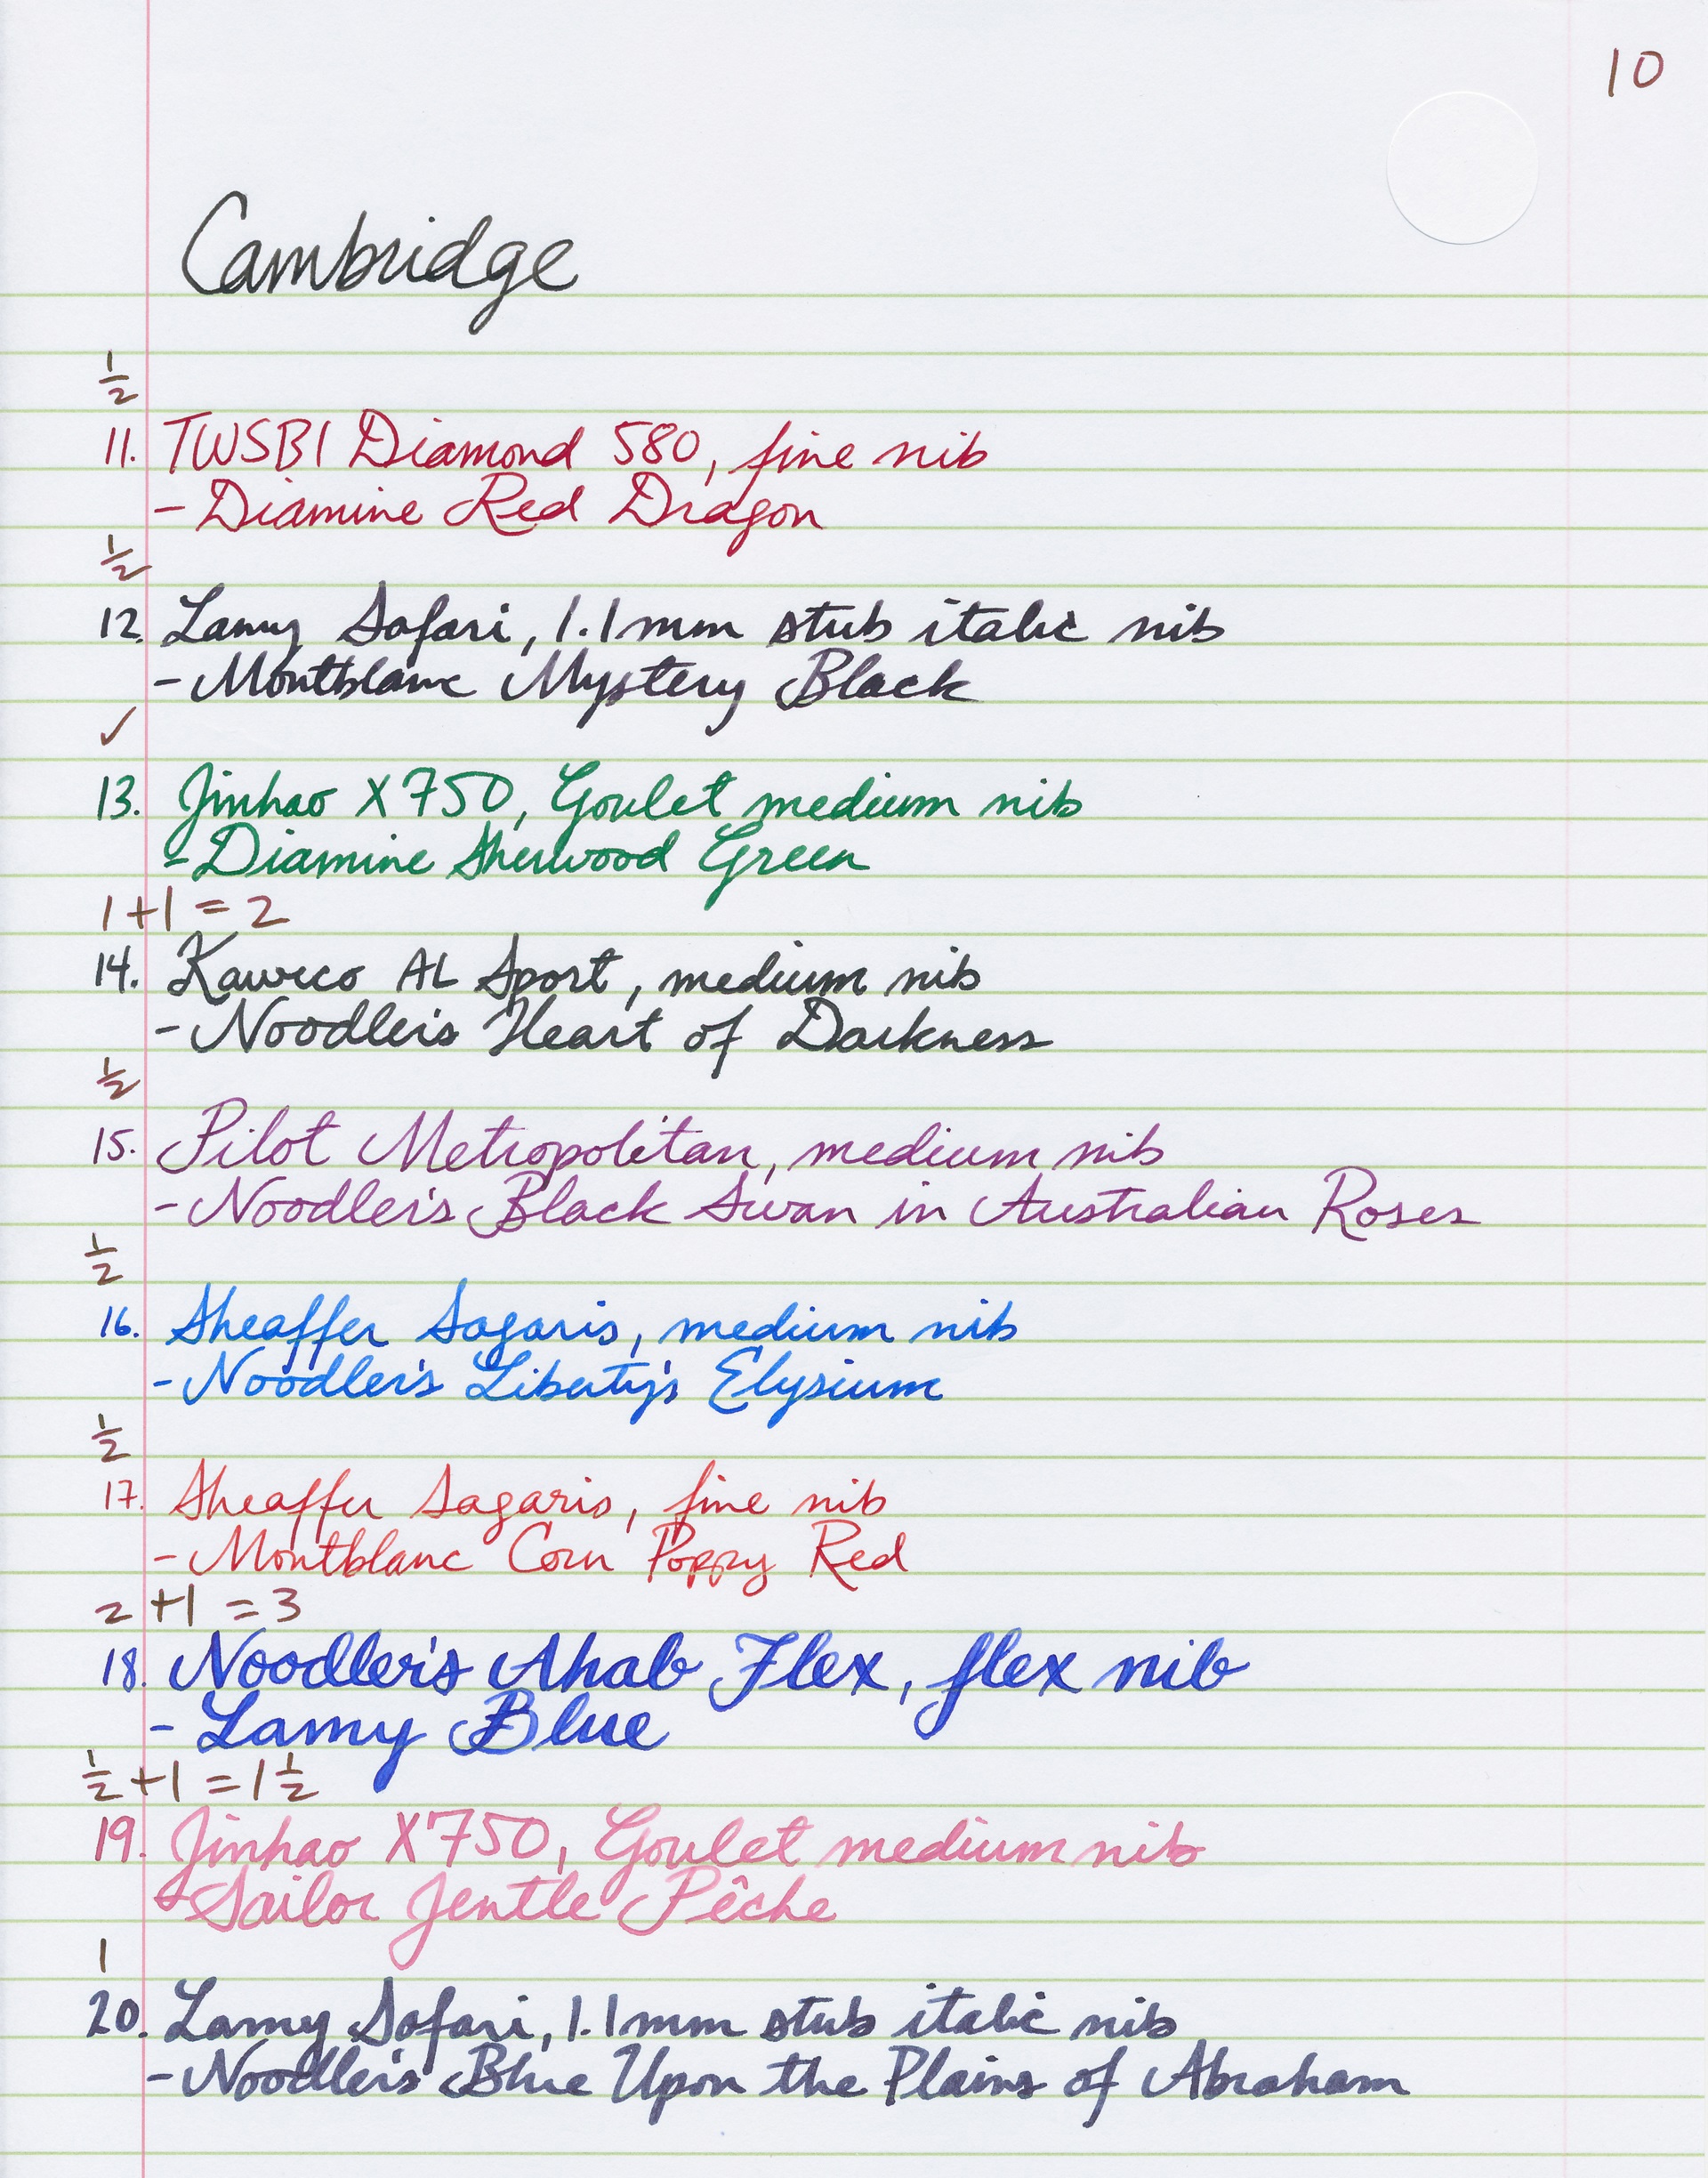 10
Cambridge
1/2
11. TWSBI Diamond 580, fine nib
- Diamine Red Dragon
1/2
12. Lamy Safari, 1.1mm stub italic nib
- Montblanc Mystery Black
✓
13. Jinhao X750, Goulet medium nib
- Diamine Sherwood Green
1+1 = 2
14. Kaweco AL Sport, medium nib
- Noodler's Heart of Darkness
1/2
15. Pilot Metropolitan, medium nib
- Noodler's Black Swan in Australian Roses
1/2
16. Sheaffer Sagaris, medium nib
- Noodler's Liberty's Elysium
1/2
17. Sheaffer Sagaris, fine nib
- Montblanc Corn Poppy Red
2+1 = 3
18. Noodler's Ahab Flex, flex nib
- Lamy Blue
1/2+1 = 1 1/2
19. Jinhao X750, Goulet medium nib
- Sailor Jentle Pêche
1
20. Lamy Safari, 1.1mm stub italic nib
- Noodler's Blue Upon the Plains of Abraham